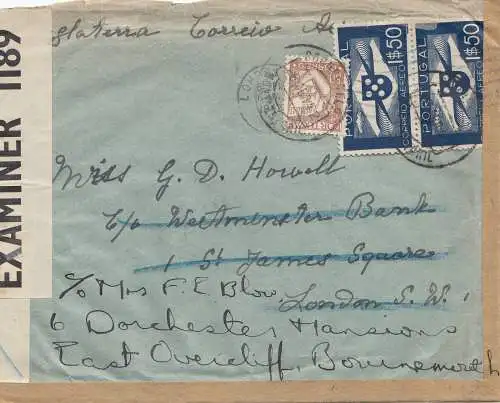 EXAMINER 1189
glaterra Correio
PORTUGAL
1$50
CORREIO AEREO
PORTUGAL
1$50
CORREIO AEREO
Miss G. D. Howell
c/o Westminster Bank
1 St James Square
London S. W. 1
c/o Mrs F. E. Blow.
6 Dorchester Mansions
East Overcliff, Bournemouth